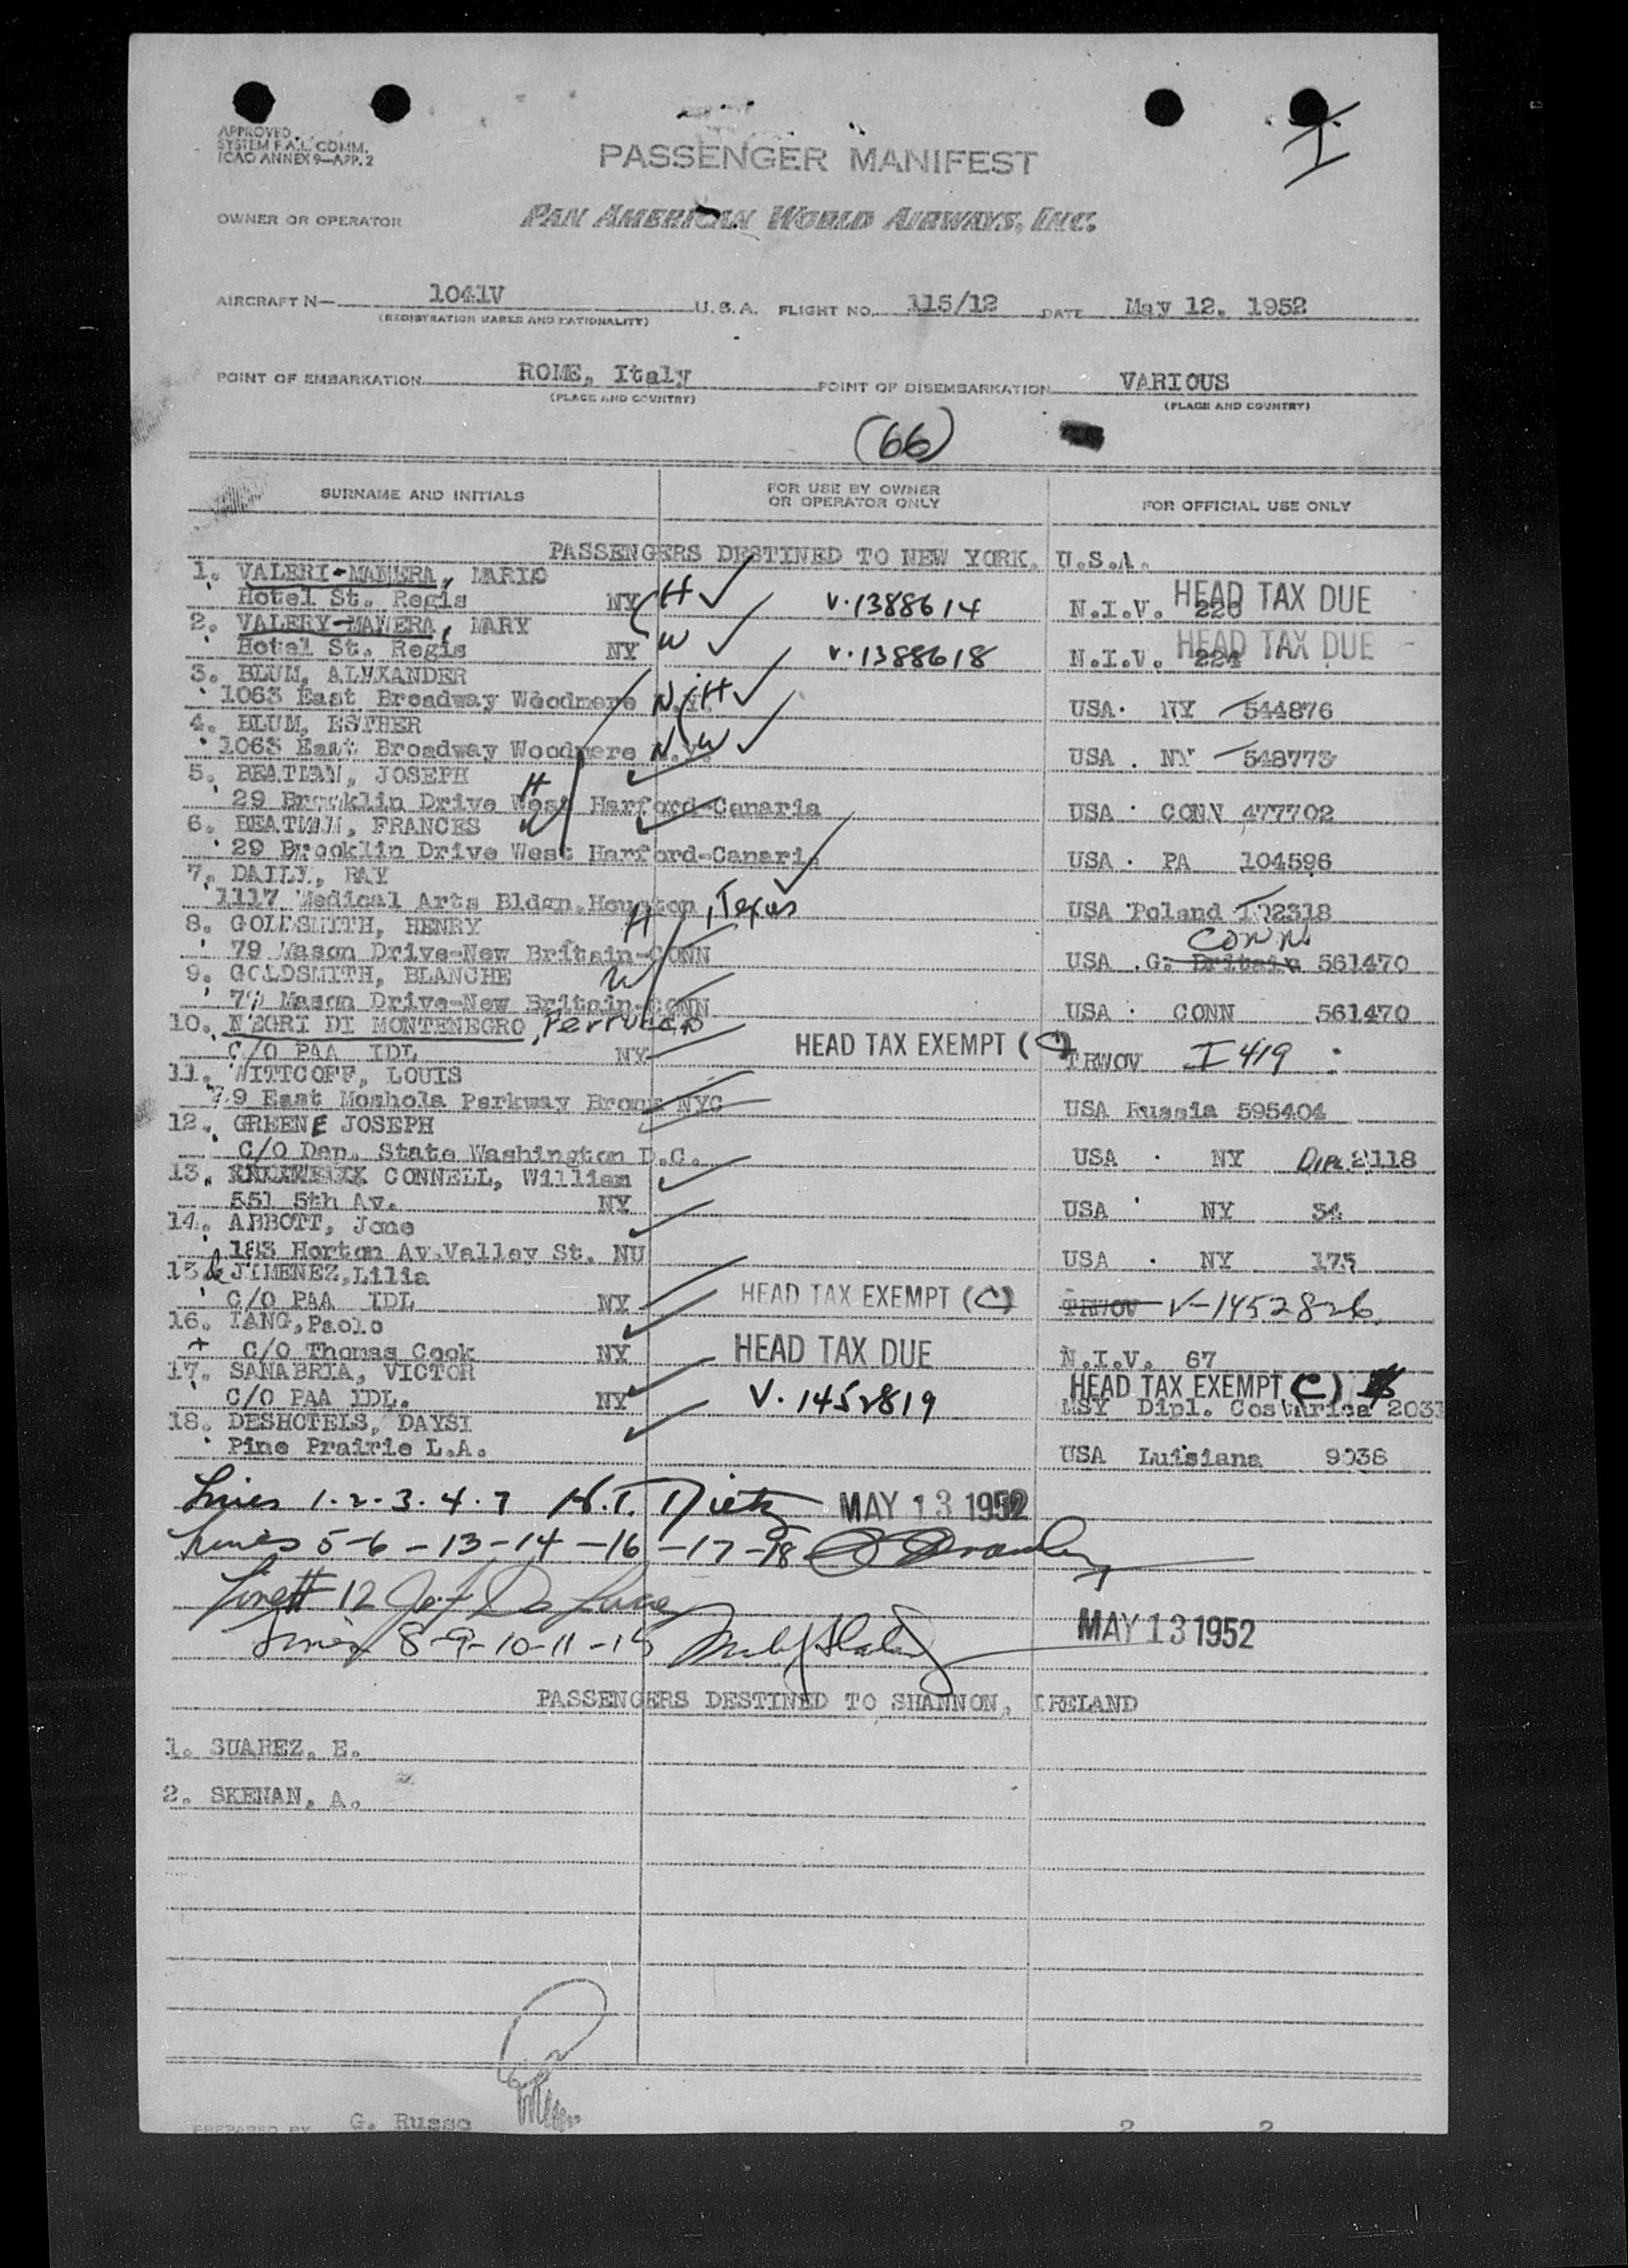 APPROVED
SYSTEM F.A.L. COMM.
ICAO ANNEX 9—APP. 2
I
PASSENGER MANIFEST
OWNER OR OPERATOR PAN AMERICAN WORLD AIRWAYS, INC.
AIRCRAFT N— 1041V U.S.A. FLIGHT NO. 115/12 DATE May 12. 1952
(REGISTRATION MARKS AND NATIONALITY)
POINT OF EMBARKATION ROME, Italy POINT OF DISEMBARKATION VARIOUS
(PLACE AND COUNTRY) (PLACE AND COUNTRY)
(66)
SURNAME AND INITIALS FOR USE BY OWNER OR OPERATOR ONLY FOR OFFICIAL USE ONLY
PASSENGERS DESTINED TO NEW YORK, U.S.A.
1. VALERI-MANERA, MARIO
Hotel St. Regis NY H V.1388614 N.I.V. 226 HEAD TAX DUE
2. VALERY-MANERA, MARY
Hotel St. Regis NY W V.1388618 N.I.V. 224 HEAD TAX DUE
3. BLUM, ALEXANDER
1063 East Broadway Woodmere N.Y. H USA NY 544876
4. BLUM, ESTHER
1063 East Broadway Woodmere N.Y. W USA NY 548773
5. BEATMAN, JOSEPH H
29 Brooklin Drive West Harford-Canaria USA CONN 477702
6. BEATMAN, FRANCES W
29 Brooklin Drive West Harford-Canaria USA PA 104596
7. DAILY, RAY
1117 Medical Arts Bldgn.Houston, Texas USA Poland 102318
8. GOLDSMITH, HENRY H CONN
79 Mason Drive-New Britain-CONN USA G. Britain 561470
9. GOLDSMITH, BLANCHE W
79 Mason Drive-New Britain-CONN USA CONN 561470
10. NEGRI DI MONTENEGRO,
C/O PAA IDL NY HEAD TAX EXEMPT (C) TRWOV I 419
11. WITTCOFF, LOUIS
9 East Moshola Perkway Bronx NYC USA Russia 595404
12. GREENE JOSEPH
C/O Dep. State Washington D.C. USA NY Dipl 2118
13. CONNELL, William
551 5th Av. NY USA NY 34
14. ABBOTT, Jone
183 Horton Av.Valley St. NU USA NY 175
15. JIMENEZ,Lilia
C/O PAA IDL NY HEAD TAX EXEMPT (C) TRWOV V-1452826
16. IANG,Paolo
+ C/O Thomas Cook NY HEAD TAX DUE N.I.V. 67
17. SANABRIA, VICTOR HEAD TAX EXEMPT (C)
C/O PAA IDL. NY V.1452819 MSY Dipl. Costarica 2031
18. DESHOTELS, DAYSI
Pine Prairie L.A. USA Luisiana 9038
Lines 1-2-3-4-7 H.T. Dietz MAY 13 1952
Lines 5-6-13-14-16-17-18
Line # 12
Lines 8-9-10-11-15 MAY 13 1952
PASSENGERS DESTINED TO SHANNON, IRELAND
1. SUAREZ, E.
2. SKENAN, A.
PREPARED BY G. Russo 2 2